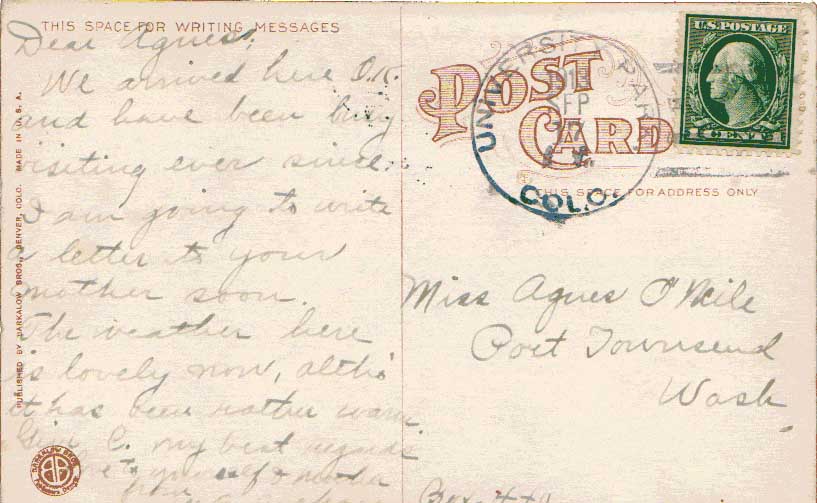 THIS SPACE FOR WRITING MESSAGES
Dear Agnes,
We arrived here O.K.
and have been busy
visiting ever since.
I am going to write
a letter to your
mother soon.
The weather here
is lovely now, altho
it has been rather warm.
Give C. my best regards
to yourself & mother
from
PUBLISHED BY BARKALOW BROS., DENVER, COLO. MADE IN U. S. A.
BARKALOW BROS.
POST
CARD
UNIVERSITY PARK
SEP
COLO.
U.S. POSTAGE
1 CENT 1
THIS SPACE FOR ADDRESS ONLY
Miss Agnes O'Neile
Port Townsend
Wash
Box